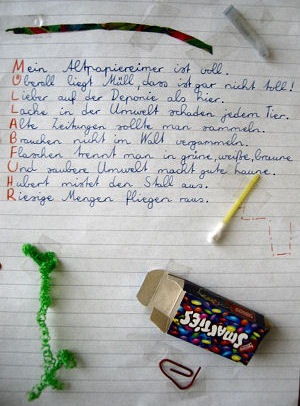 Mein Altpapiereimer ist voll.
Überall liegt Müll, dass ist gar nicht toll!
Lieber auf der Deponie als hier.
Lacke in der Umwelt schaden jedem Tier.
Alte Zeitungen sollte man sammeln.
Brauchen nicht im Walt vergammeln.
Flaschen trennt man in grüne, weiße, braune
Und saubere Umwelt macht gute Laune.
Hubert mistet den Stall aus.
Riesige Mengen fliegen raus.
SMARTIES